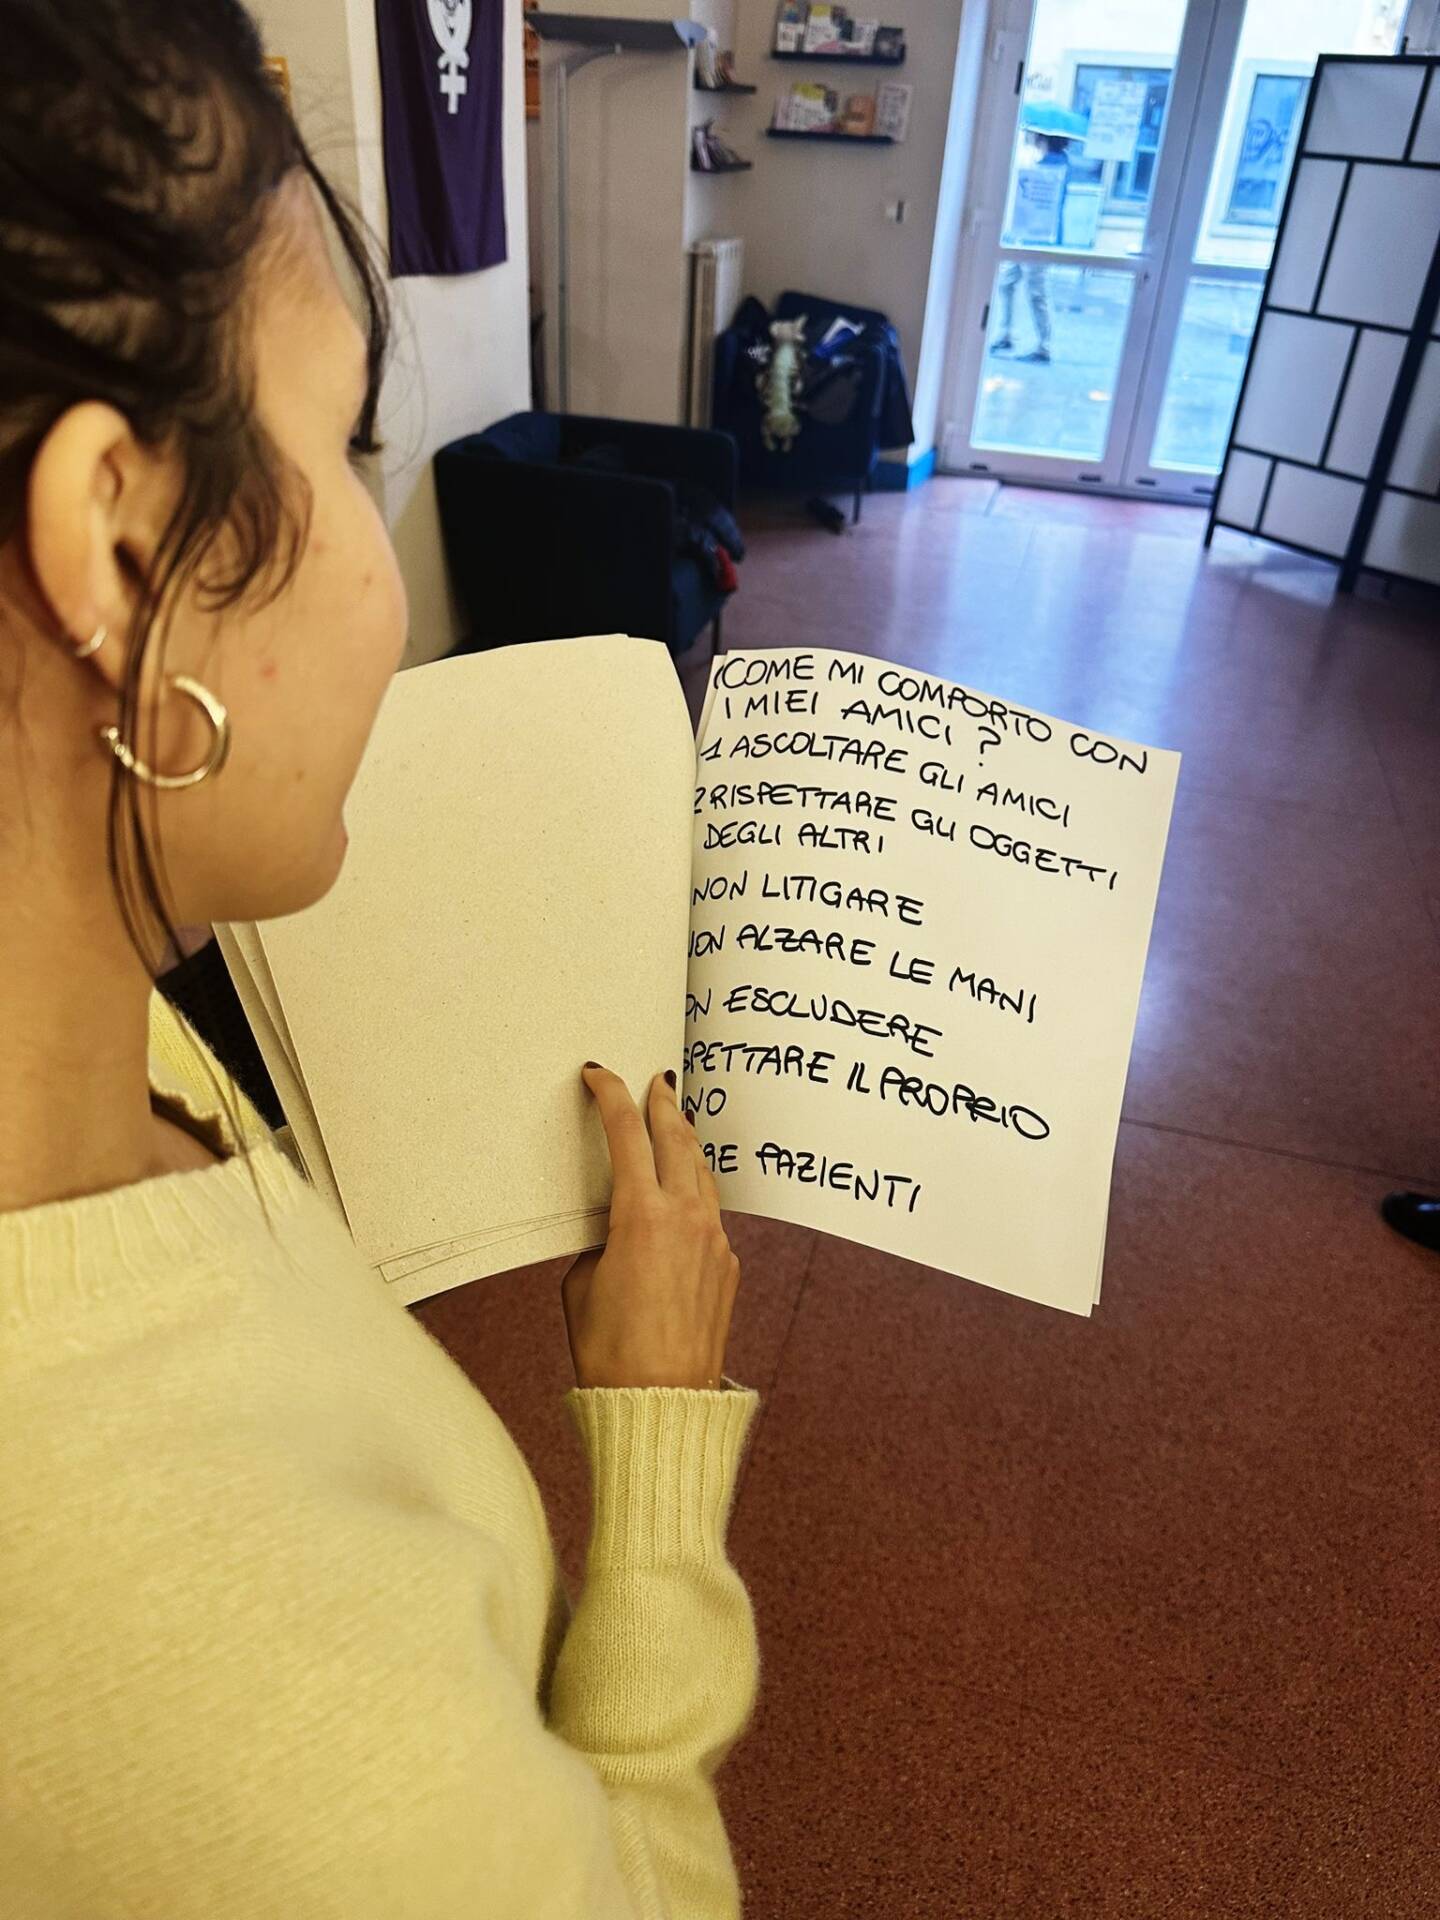 COME MI COMPORTO CON
I MIEI AMICI?
1 ASCOLTARE GLI AMICI
2 RISPETTARE GLI OGGETTI
DEGLI ALTRI
NON LITIGARE
NON ALZARE LE MANI
ESCLUDERE
IL PROPRIO
PAZIENTI